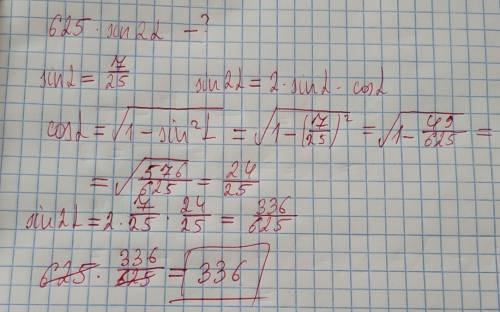 625 · sin2α - ?
sinα = 7/25   sin2α = 2 · sinα · cosα
cosα = √(1 - sin²α) = √(1 - (7/25)²) = √(1 - 49/625) =
= √(576/625) = 24/25
sin2α = 2 · 7/25 · 24/25 = 336/625
625 · 336/625 = 336